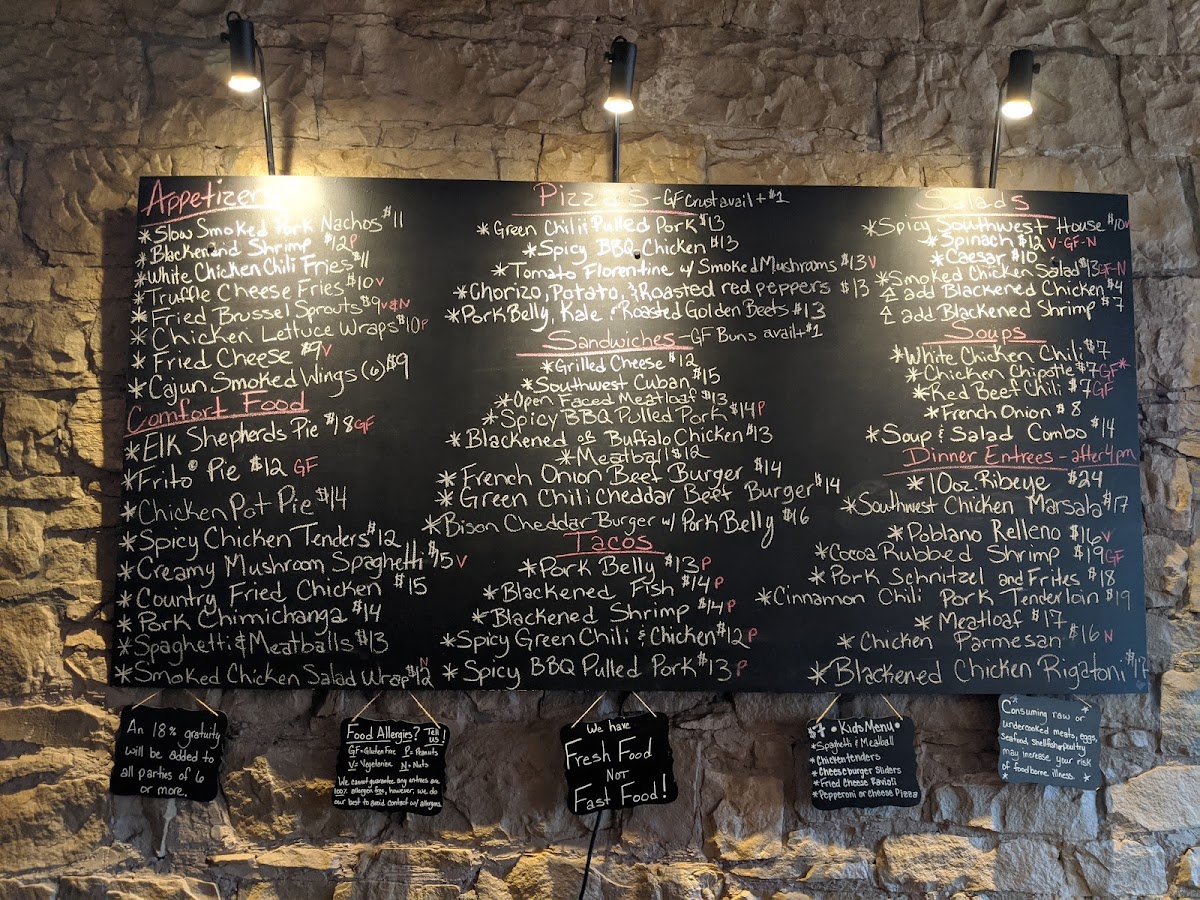 Appetizers
*Slow Smoked Pork Nachos $11
*Blackenend Shrimp $12 P
*White Chicken Chili Fries $11
*Truffle Cheese Fries $10 V
*Fried Brussel Sprouts $9 V&N
*Chicken Lettuce Wraps $10 P
*Fried Cheese $9 V
*Cajun Smoked Wings (6) $9
Comfort Food
*Elk Shepherds Pie $18 GF
*Frito® Pie $12 GF
*Chicken Pot Pie $14
*Spicy Chicken Tenders $12
*Creamy Mushroom Spaghetti $15 V
*Country Fried Chicken $15
*Pork Chimichanga $14
*Spaghetti & Meatballs $13
*Smoked Chicken Salad Wrap $12 N
Pizzas - GF Crust avail + $1
*Green Chili Pulled Pork $13
*Spicy BBQ Chicken $13
*Tomato Florentine w/ Smoked Mushrooms $13 V
*Chorizo, Potato, & Roasted red peppers $13
*Pork Belly, Kale & Roasted Golden Beets $13
Sandwiches - GF Buns avail + $1
*Grilled Cheese $12
*Southwest Cuban $15
*Open Faced Meatloaf $13
*Spicy BBQ Pulled Pork $14 P
*Blackened or Buffalo Chicken $13
*Meatball $12
*French Onion Beef Burger $14
*Green Chili Cheddar Beef Burger $14
*Bison Cheddar Burger w/ Pork Belly $16
Tacos
*Pork Belly $13 P
*Blackened Fish $14 P
*Blackened Shrimp $14 P
*Spicy Green Chili & Chicken $12 P
*Spicy BBQ Pulled Pork $13 P
Salads
*Spicy Southwest House $10 V
*Spinach $12 V-GF-N
*Caesar $10
*Smoked Chicken Salad $13 GF-N
add Blackened Chicken $4
add Blackened Shrimp $7
Soups
*White Chicken Chili $7
*Chicken Chipotle $7 GF*
*Red Beef Chili $7 GF
*French Onion $8
*Soup & Salad Combo $14
Dinner Entrees - after 4pm
*10oz Ribeye $24
*Southwest Chicken Marsala $17
*Poblano Relleno $16 V
*Cocoa Rubbed Shrimp $19 GF
*Pork Schnitzel and Frites $18
*Cinnamon Chili Pork Tenderloin $19
*Meatloaf $17
*Chicken Parmesan $16 N
*Blackened Chicken Rigatoni $17
An 18% gratuity
will be added to
all parties of 6
or more.
Food Allergies? Tell us!
GF=Gluten Free P=Peanuts
V=Vegetarian N=Nuts
We cannot guarantee any entrees are
100% allergen free, however, we do
our best to avoid contact w/ allergens.
We have
Fresh Food
Not
Fast Food!
$7 • Kids Menu •
*Spaghetti & Meatball
*Chicken tenders
*Cheeseburger Sliders
*Fried Cheese Ravioli
*Pepperoni or Cheese Pizza
*Consuming raw or
undercooked meats, eggs,
seafood, shellfish or poultry
may increase your risk
of foodborne illness. *